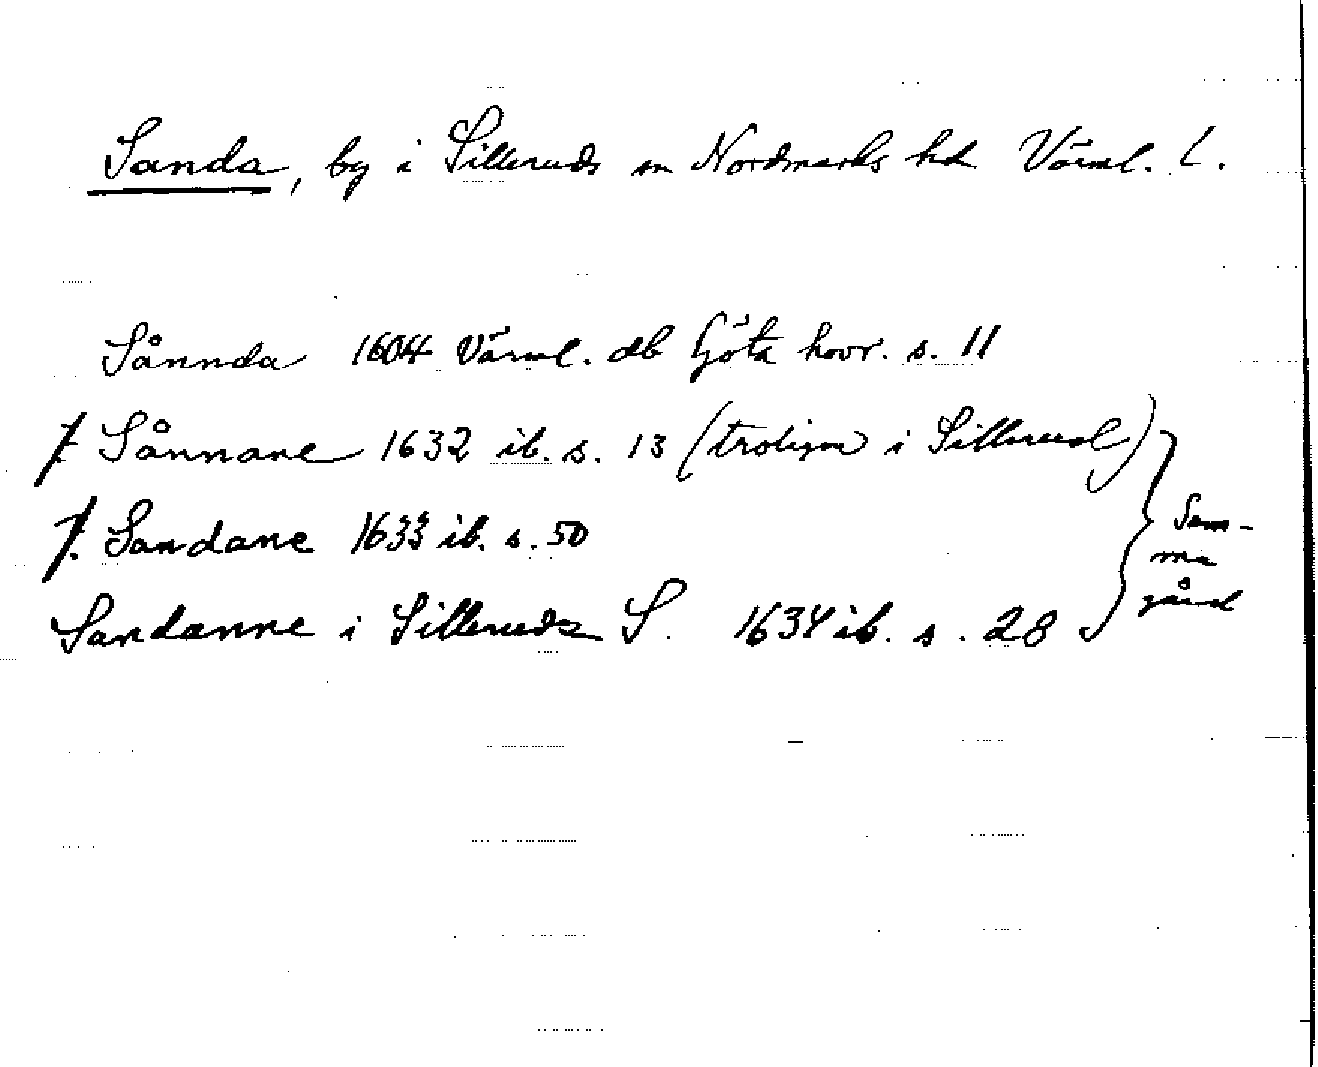 Sanda, by i Silleruds sn Nordmarks hd Värml. l.
Sånnda 1604 Värml. db Göta hovr. s. 11
/. Sånnane 1632 ib. s. 13 (troligen i Sillerud)
/. Sandane 1633 ib. s. 50
Sandanne i Silleruds S. 1634 ib. s. 28
Sam-
ma
gård